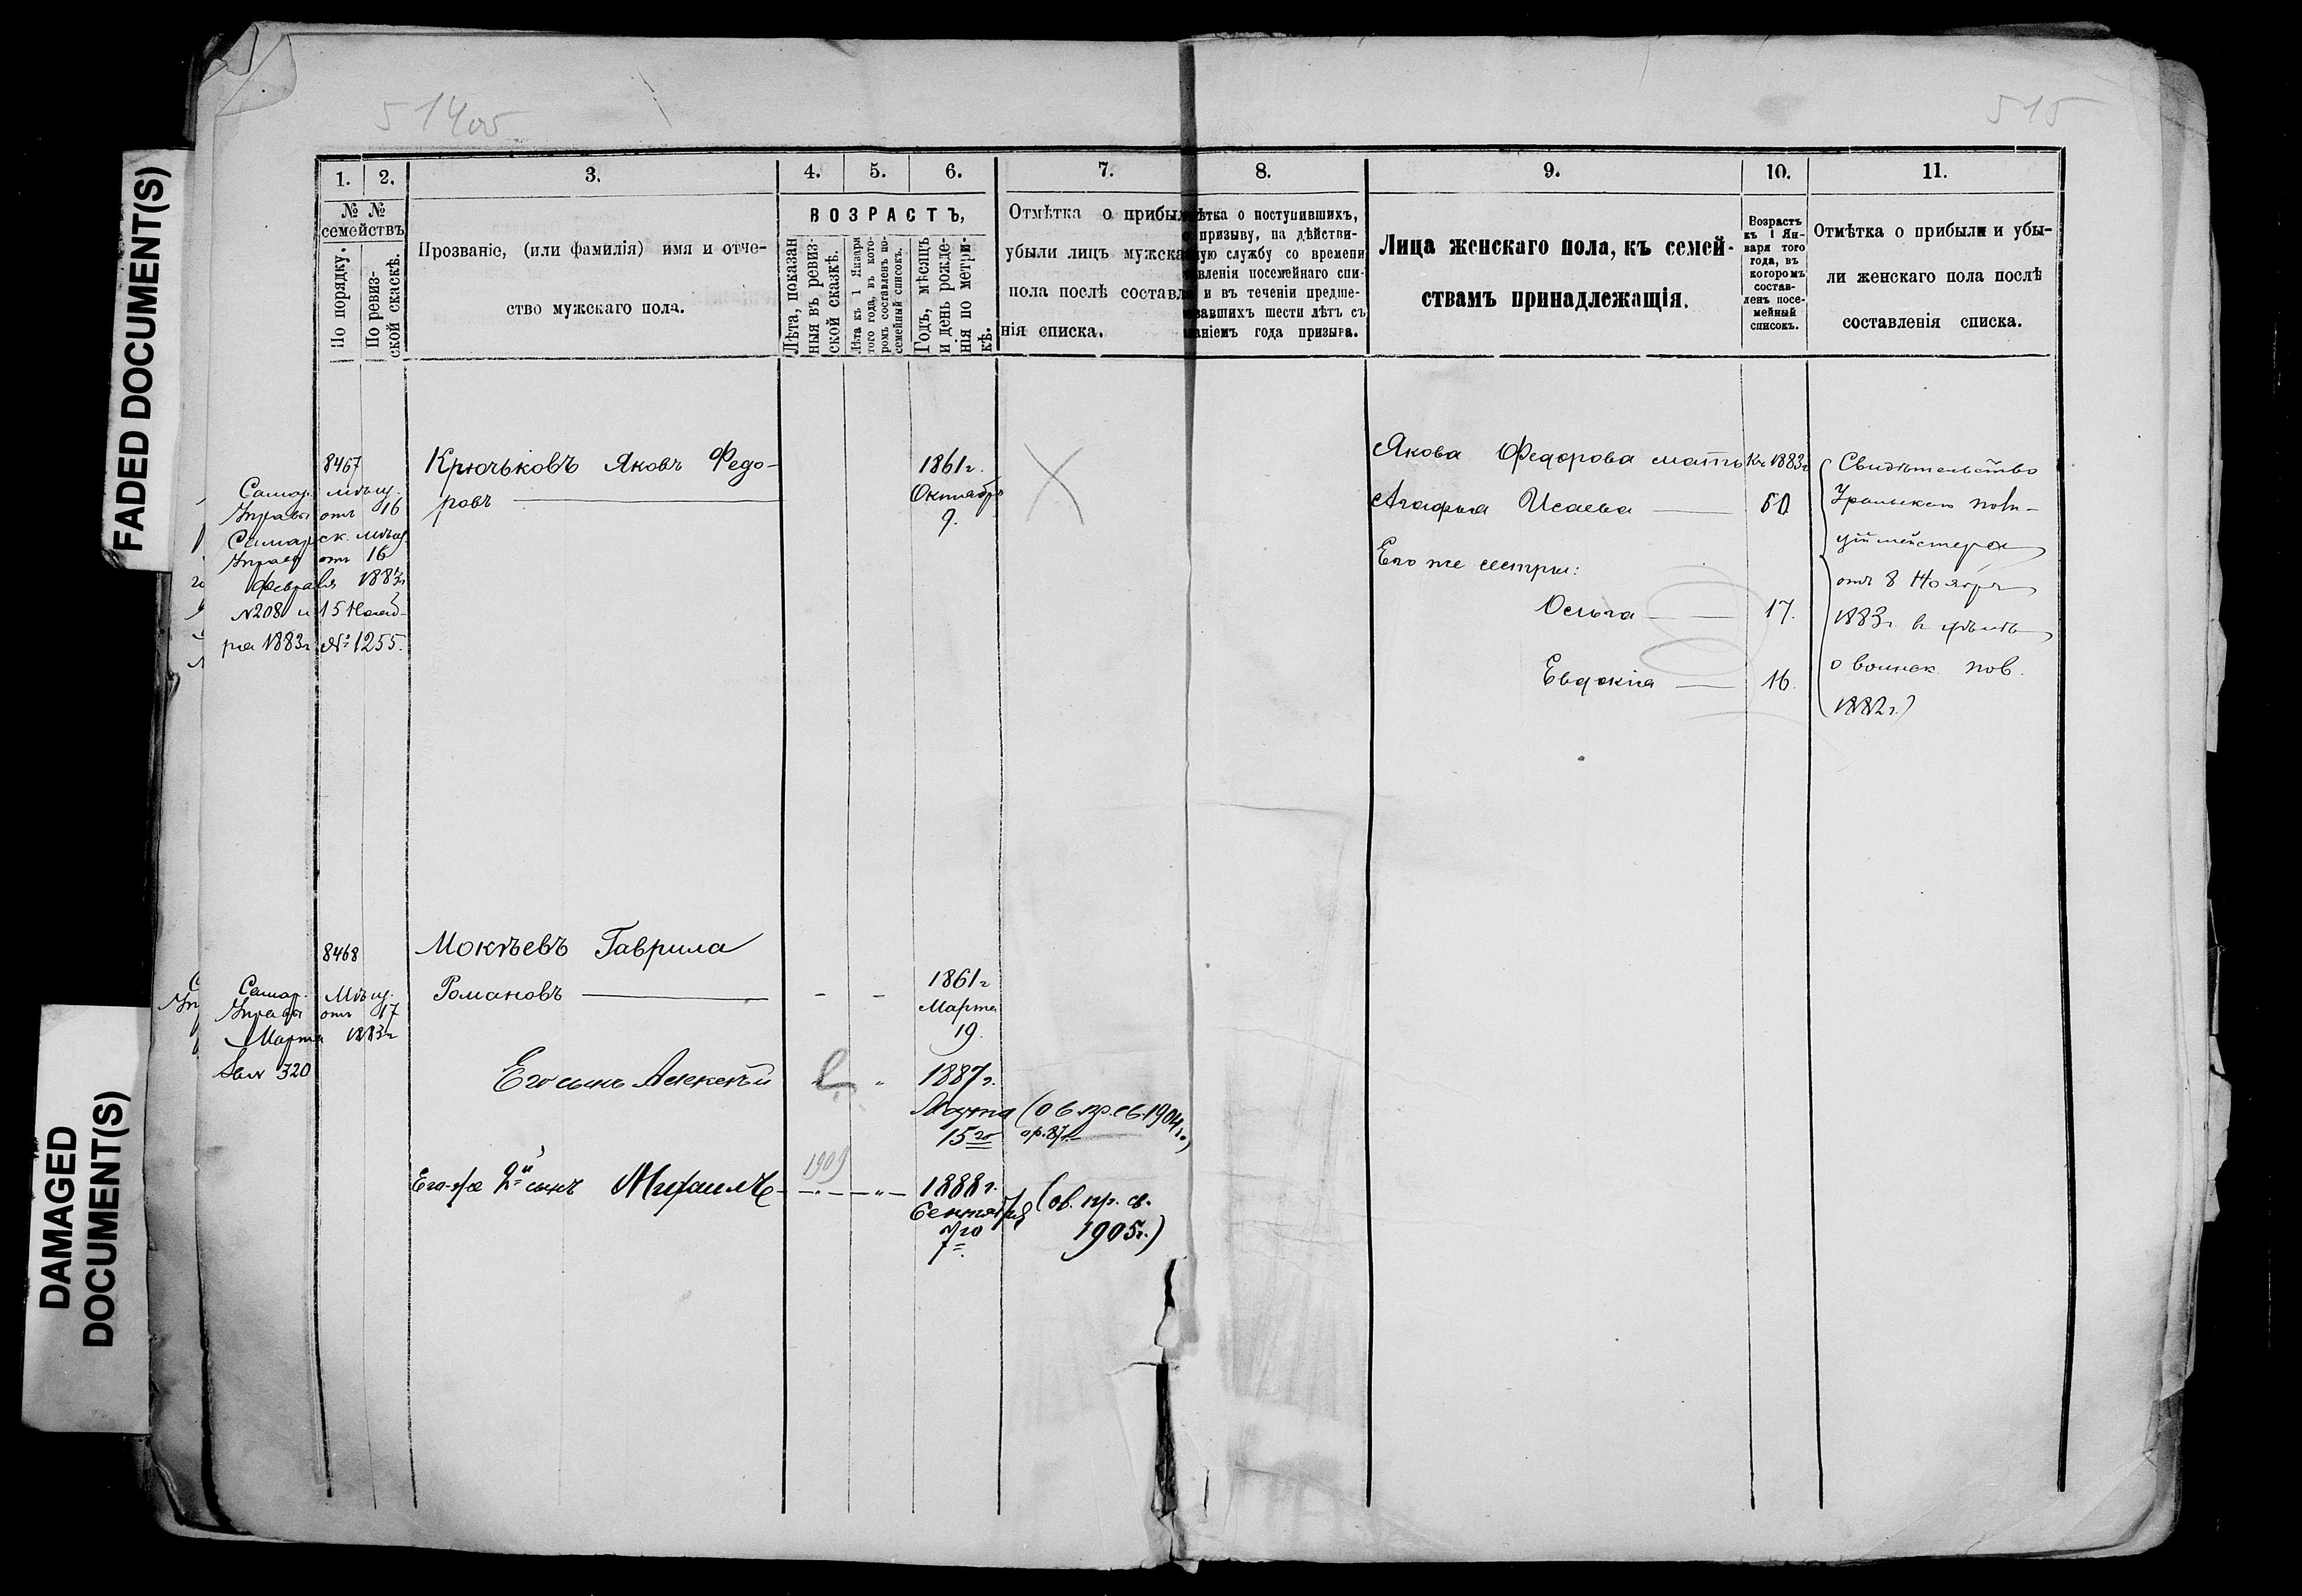 514об
515
FADED DOCUMENT(S)
DAMAGED
DOCUMENT(S)
1. 2. 3. 4. 5. 6. 7. 8. 9. 10. 11.
№ №
семействъ
По порядку.
По ревиз-
ской скаскѣ.
Прозваніе, (или фамилія) имя и отче-
ство мужскаго пола.
ВОЗРАСТЪ,
Лѣта, показан
ныя въ ревиз-
ской сказкѣ.
Лѣта къ 1 Января
того года, въ кото-
ромъ составленъ по-
семейный списокъ.
Годъ, мѣсяцъ
и день рожде-
нія по метри-
кѣ.
Отмѣтка о прибыл
убыли лицъ мужска
пола послѣ составл
нія списка.
ѣтка о поступившихъ,
призыву, на дѣйстви-
ную службу со времени
вленія посемейнаго спи-
и въ теченіи предше-
вавшихъ шести лѣтъ съ
аніемъ года призыва.
Лица женскаго пола, къ семей-
ствамъ принадлежащія.
Возрастъ
къ 1 Ян-
варя того
года, въ
которомъ
состав-
ленъ посе-
мейный
списокъ.
Отмѣтка о прибыли и убы-
ли женскаго пола послѣ
составленія списка.
8467
Самар. мѣщ.
Управы отъ 16
Самарск. мѣщ.
Управ отъ 16
Февраля 1883г
№208 и 15 Нояб-
ря 1883г №1255.
Крючьковъ Яковъ Федо-
ровъ
1861г.
Октября
9.
Якова Федорова мать
Къ 1883г
Агафья Исаева
50
Его же сестры:
Ольга 17.
Евдокія 16.
Свидѣтельство
Уральскаго поли-
ціймейстера
отъ 8 Ноября
1883г
о воинск. пов.
1882г.)
8468
Самар. Мѣщ.
Управы отъ 17
Марта 1883г
320
Мокѣевъ Гаврила
Романовъ
1861г
Марта
19.
Его сынъ Алексѣй
1887г.
Марта
15го
(об.пр.св.1904г.)
1909
Его-же 2й сынъ Михаилъ
1888г.
Сентября
7го
(об. пр. св.
1905г.)